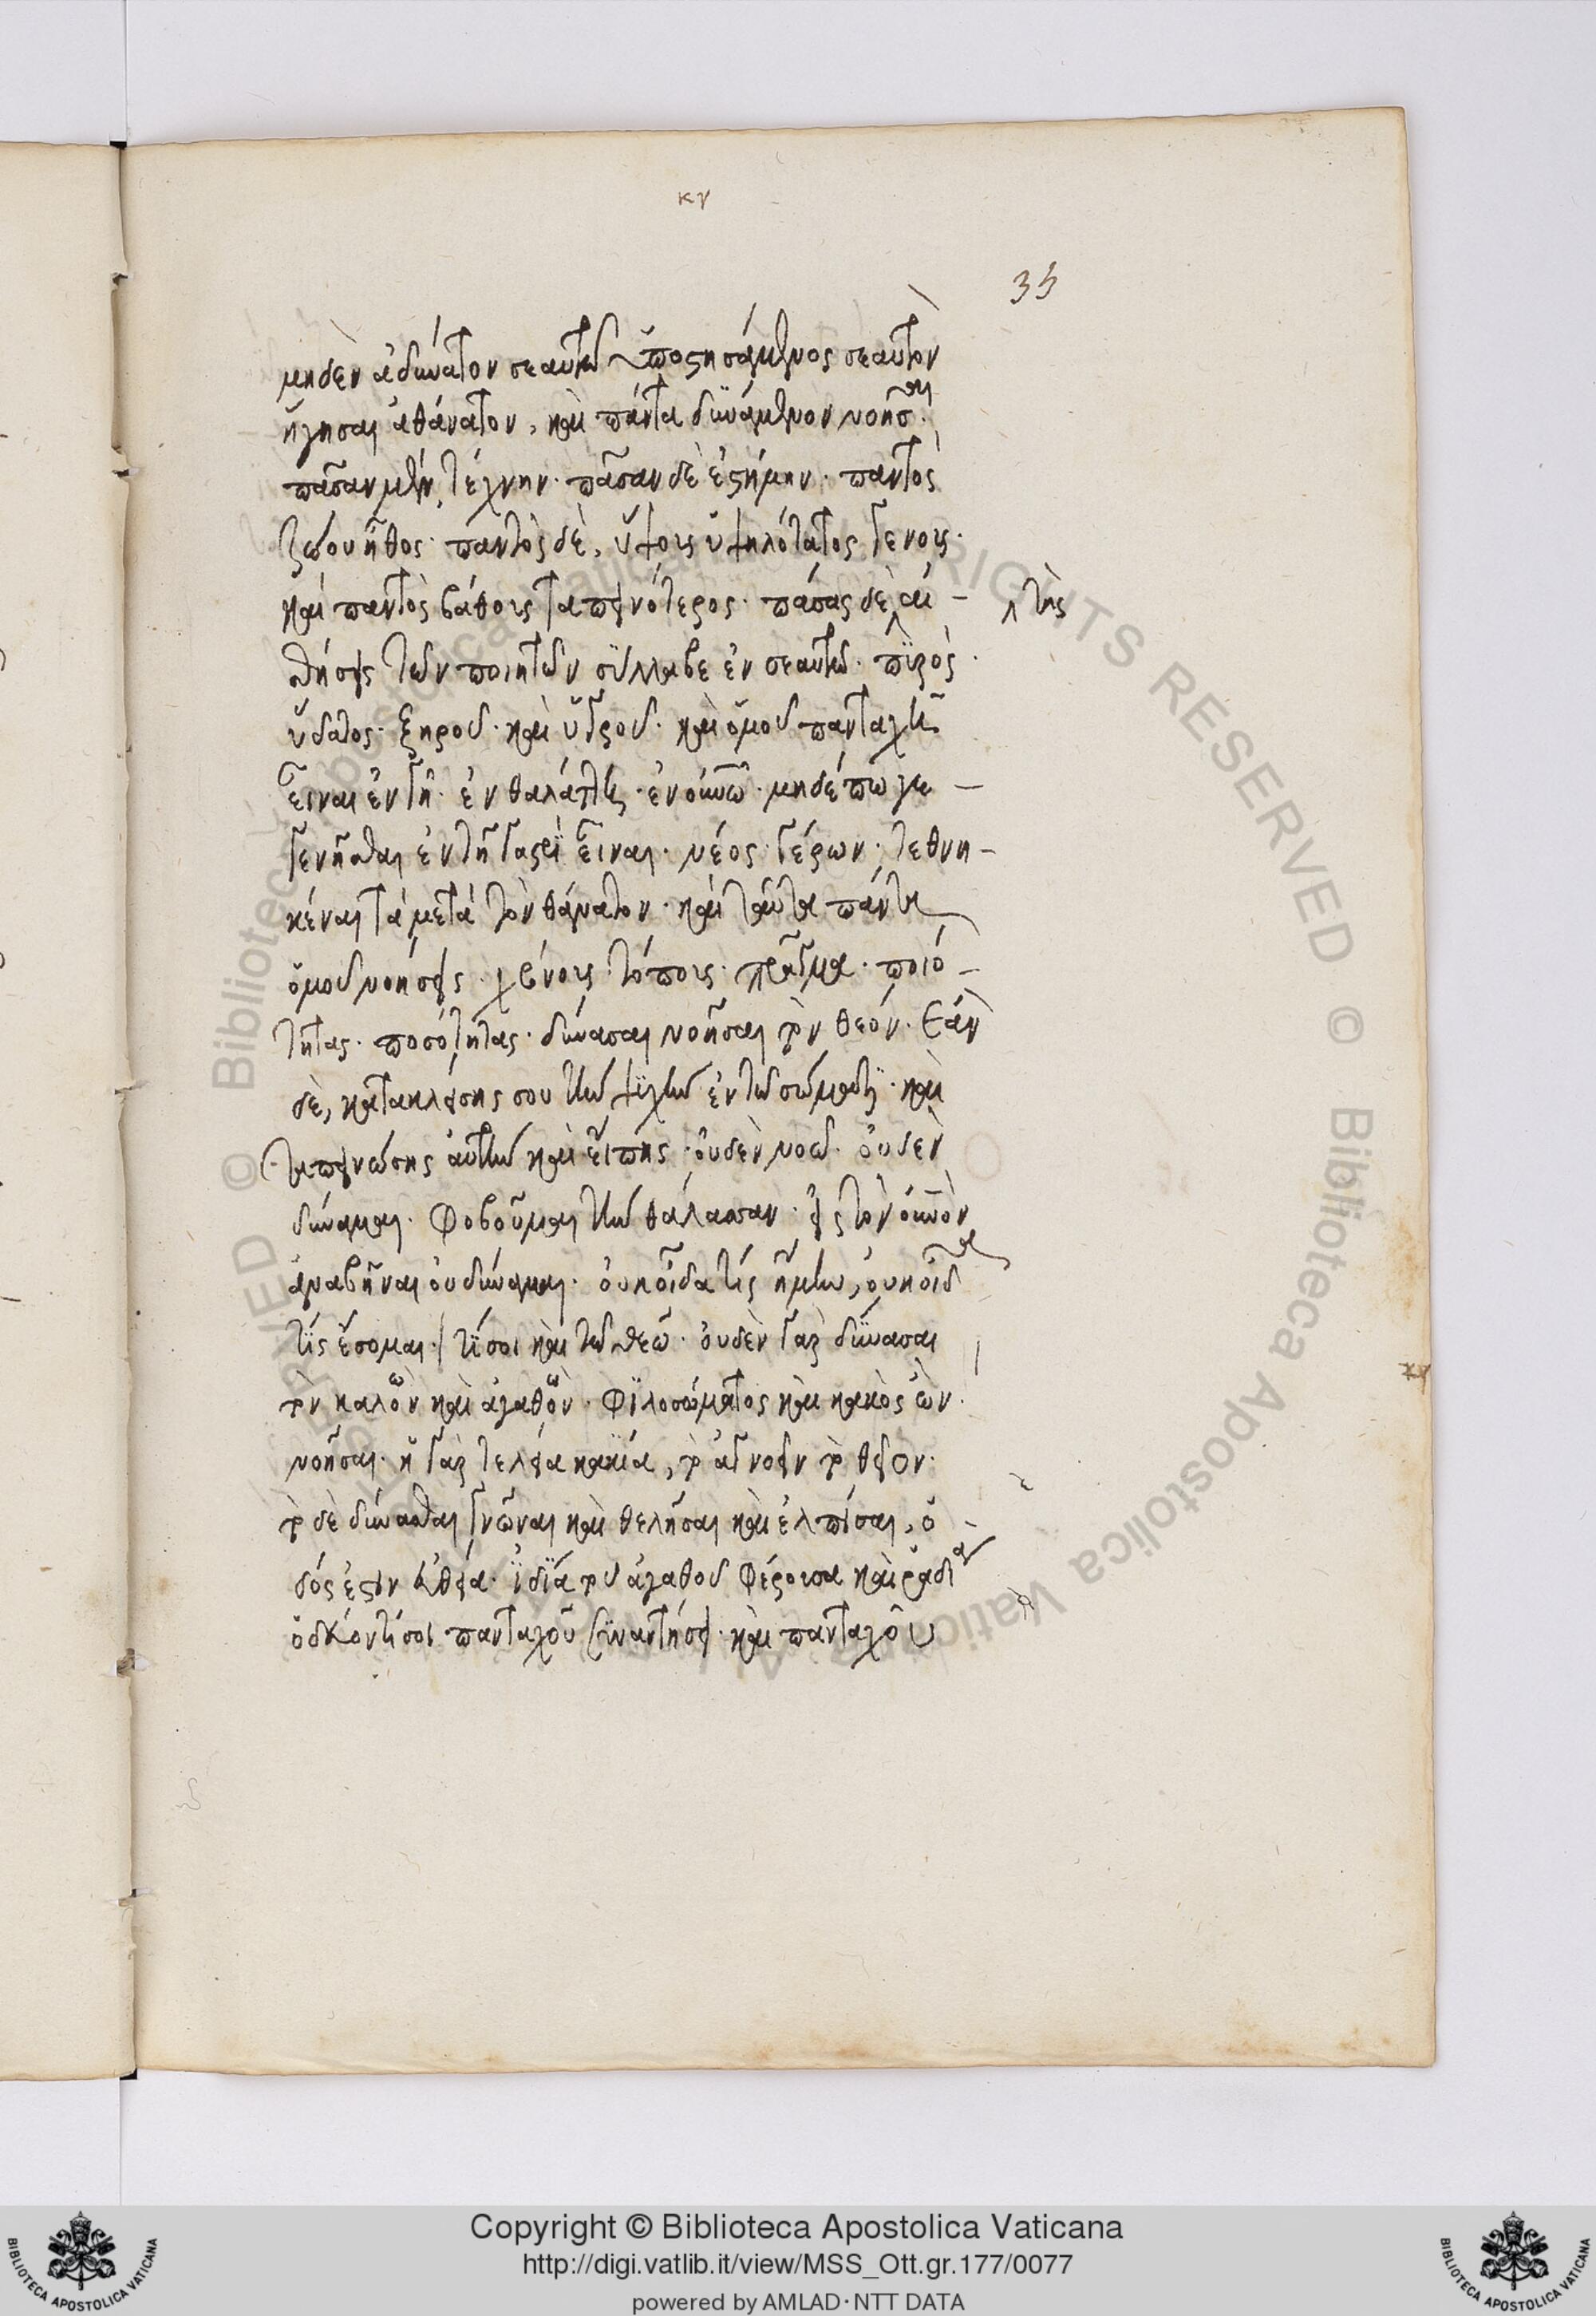 κγ
35
μηδὲν ἀδύνατον σεαυτῶ ὑποστησάμενος σεαυτὸν
ἥγησαι ἀθάνατον, καὶ πάντα δυνάμενον νοῆσαι.
πᾶσαν μὲν τέχνην. πᾶσαν δὲ ἐπιστήμην. παντὸς
ζώου ἦθος. παντὸς δὲ, ὕψους ὑψηλότατος γενοῦ.
καὶ παντὸς βάθους ταπεινότερος. πάσας δὲ αἰ -
λ τὰς
σθήσεις τῶν ποιητῶν σύλλαβε ἐν σεαυτῶ. πυρὸς.
ὕδατος. ξηροῦ. καὶ ὑγροῦ. καὶ ὁμοῦ πανταχῆ
εἶναι ἐν γῆ. ἐν θαλάττη. ἐν οὐνῶ. μηδέπω γε -
γενῆσθαι ἐν τῆ γαστρὶ εἶναι. νέος. γέρων. τεθνη -
κέναι τὰ μετὰ τὸν θάνατον. καὶ ταῦτα πάντα
ὁμοῦ νοήσεις. χρόνους. τόπους. πρᾶγμα. ποιό -
τητας. ποσότητας. δύνασαι νοῆσαι τὸν θεόν. Ἐὰν
δὲ, κατακλείσης σου τὴν ψυχὴν ἐν τῶ σώματι. καὶ
ταπεινώσης αὐτὴν καὶ εἴπης. οὐδὲν νοῶ. οὐδὲν
δύναμαι. φοβοῦμαι τὴν θάλασσαν. εἰς τὸν οὐνὸν
ἀναβῆναι οὐ δύναμαι. οὐκ οἶδα τίς ἤμην, οὐκ οἶδα
τίς ἔσομαι. τί σοι καὶ τῶ θεῶ. οὐδὲν γὰρ δύνασαι
τὸν καλῶν καὶ ἀγαθῶν. φιλοσώματος καὶ κακὸς ὢν.
νοῆσαι. ἡ γὰρ τελεία κακία, τὸ ἀγνοεῖν τὸ θεῖον.
τὸ δὲ δύνασθαι γνῶναι καὶ θελῆσαι καὶ ἐλπίσαι, ὁ -
δός ἐστιν εὐθεία. ἰδία τοῦ ἀγαθοῦ φέρουσα καὶ ῥαδία
ὁδεύοντί σοι πανταχοῦ συναντήσει. καὶ πανταχοῦ
Copyright © Biblioteca Apostolica Vaticana
http://digi.vatlib.it/view/MSS_Ott.gr.177/0077
powered by AMLAD·NTT DATA
BIBLIOTECA APOSTOLICA VATICANA
BIBLIOTECA APOSTOLICA VATICANA